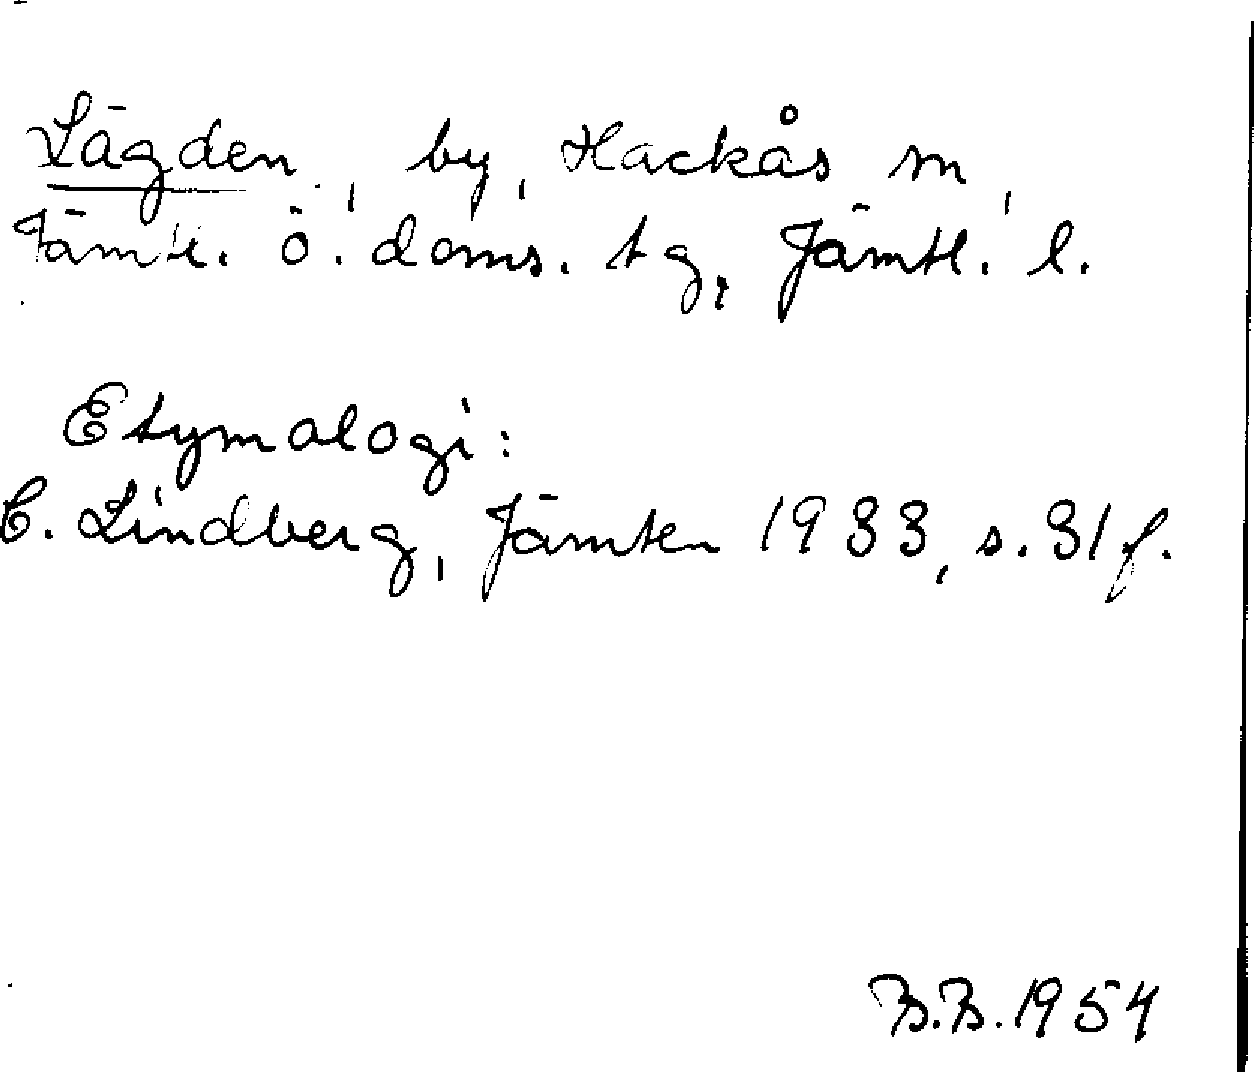 Lägden, by, Hackås sn,
Jämtl. ö. doms. tg, Jämtl. l.
Etymologi:
C. Lindberg, Jämten 1933, s. 31 f.
B.B. 1954